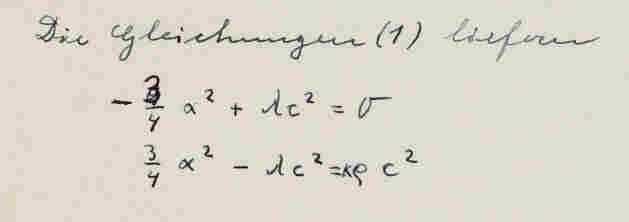 Die Gleichungen (1) liefern
- 3/4 α² + λc² = 0
3/4 α² - λc² = κρ c²